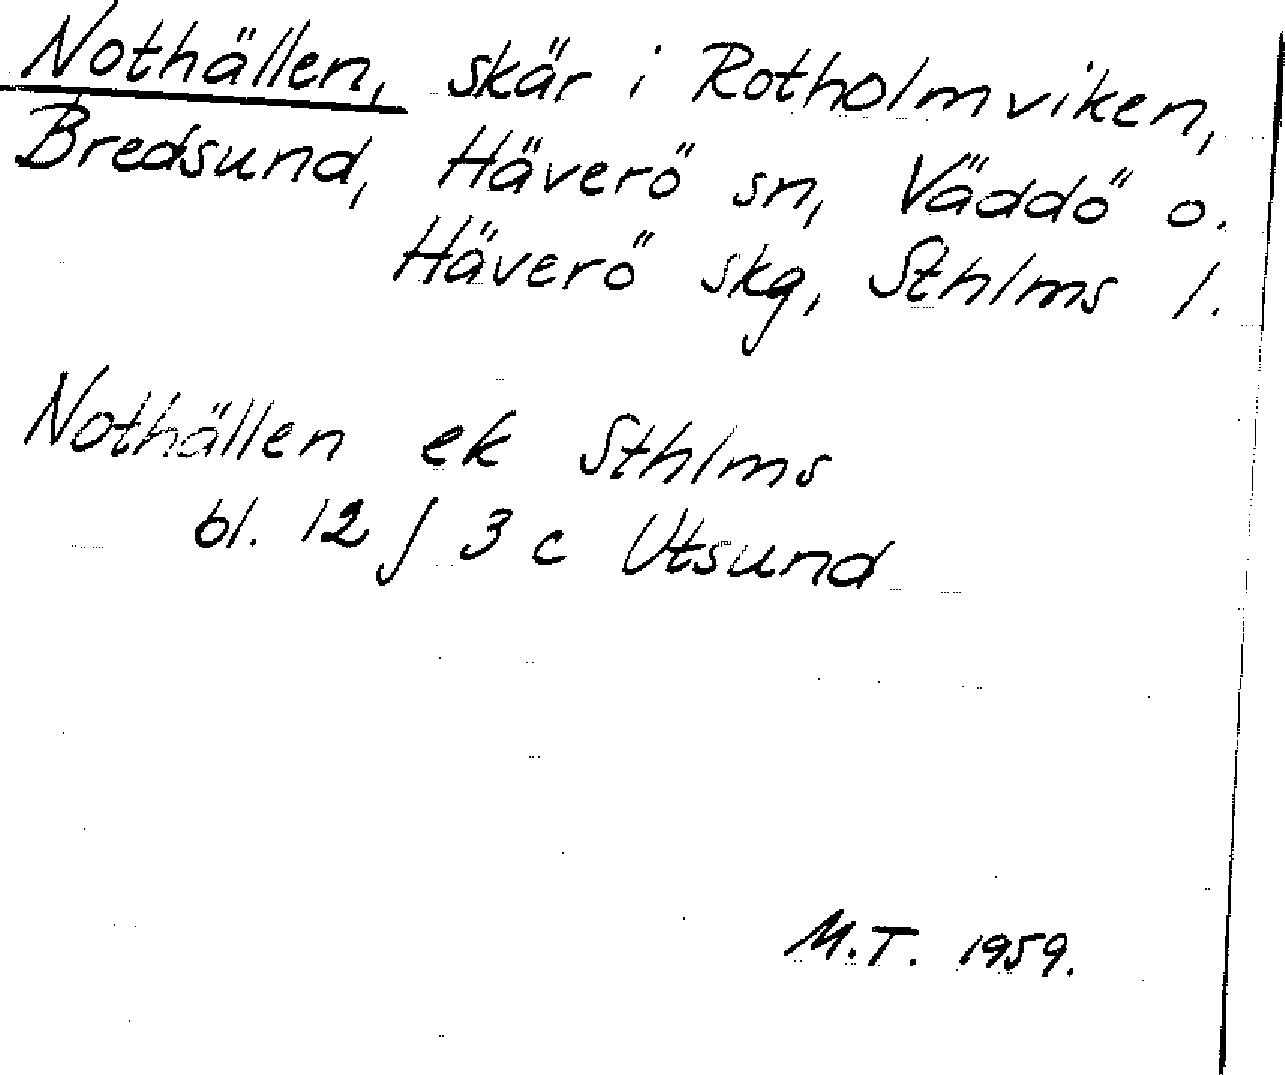 Nothällen, skär i Rotholmviken,
Bredsund, Häverö sn, Väddö o.
Häverö skg, Sthlms l.
Nothällen ek Sthlms
bl. 12 f 3 c Utsund
M.T. 1959.